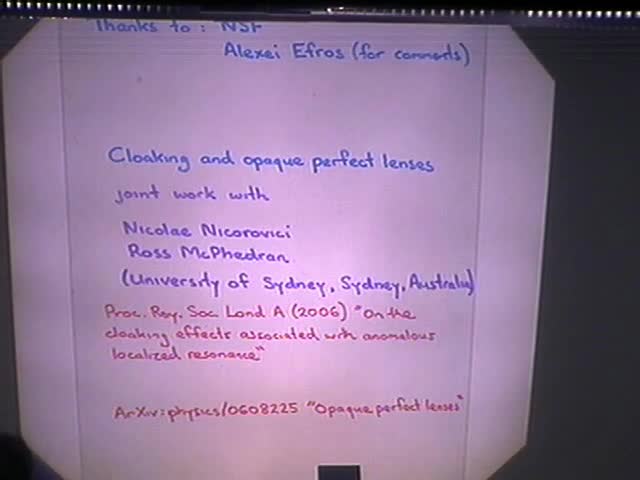 Thanks to: NSF
Alexei Efros (for comments)
Cloaking and opaque perfect lenses
joint work with
Nicolae Nicorovici
Ross McPhedran
(University of Sydney, Sydney, Australia)
Proc. Roy. Soc. Lond A (2006) "On the
cloaking effects associated with anomalous
localized resonance"
ArXiv:physics/0608225 "Opaque perfect lenses"